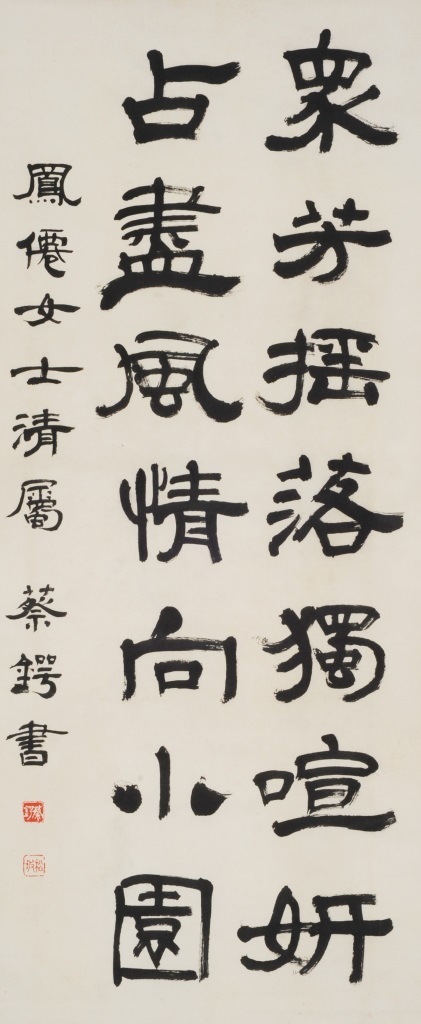 眾芳搖落獨喧妍
占盡風情向小園
鳳僊女士清屬 蔡鍔書